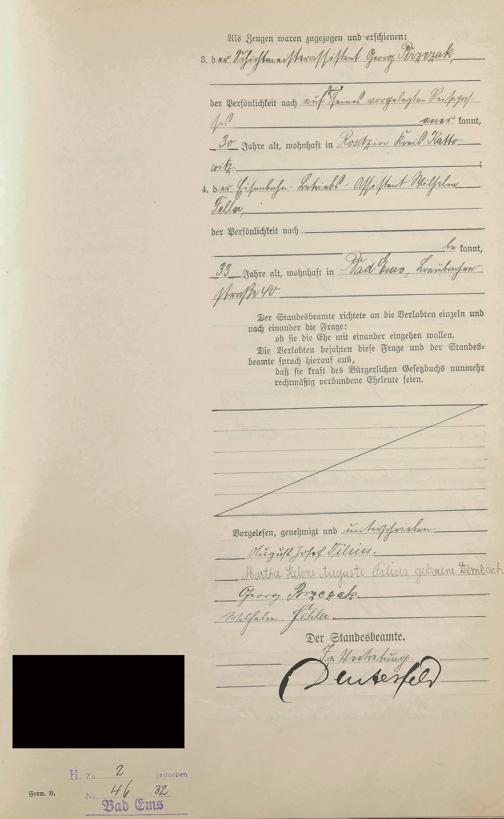 Als Zeugen waren zugezogen und erschienen:
3. der Schichtmeisterassistent Georg Brzozak,
der Persönlichkeit nach auf Seines vorgelegten Reisepas-
ses aner kannt,
30 Jahre alt, wohnhaft in Rosdzin Kreis Katto-
witz ;
4. der Eisenbahn-Betriebs-Assistent Wilhelm
der Persönlichkeit nach
be kannt,
33 Jahre alt, wohnhaft in Bad Ems, Braubacher-
straße 40
Der Standesbeamte richtete an die Verlobten einzeln und
nach einander die Frage:
ob sie die Ehe mit einander eingehen wollen.
Die Verlobten bejahten diese Frage und der Standes-
beamte sprach hierauf aus,
daß sie kraft des Bürgerlichen Gesetzbuchs nunmehr
rechtmäßig verbundene Eheleute seien.
Vorgelesen, genehmigt und unterschrieben.
August Josef Filius.
Martha Helene Auguste Filius geborene Dembach
Georg Brzozak
Wilhelm
Der Standesbeamte.
In Vertretung.
H. Zu 2 gestorben
Form. B. Nr. 46 32
Bad Ems